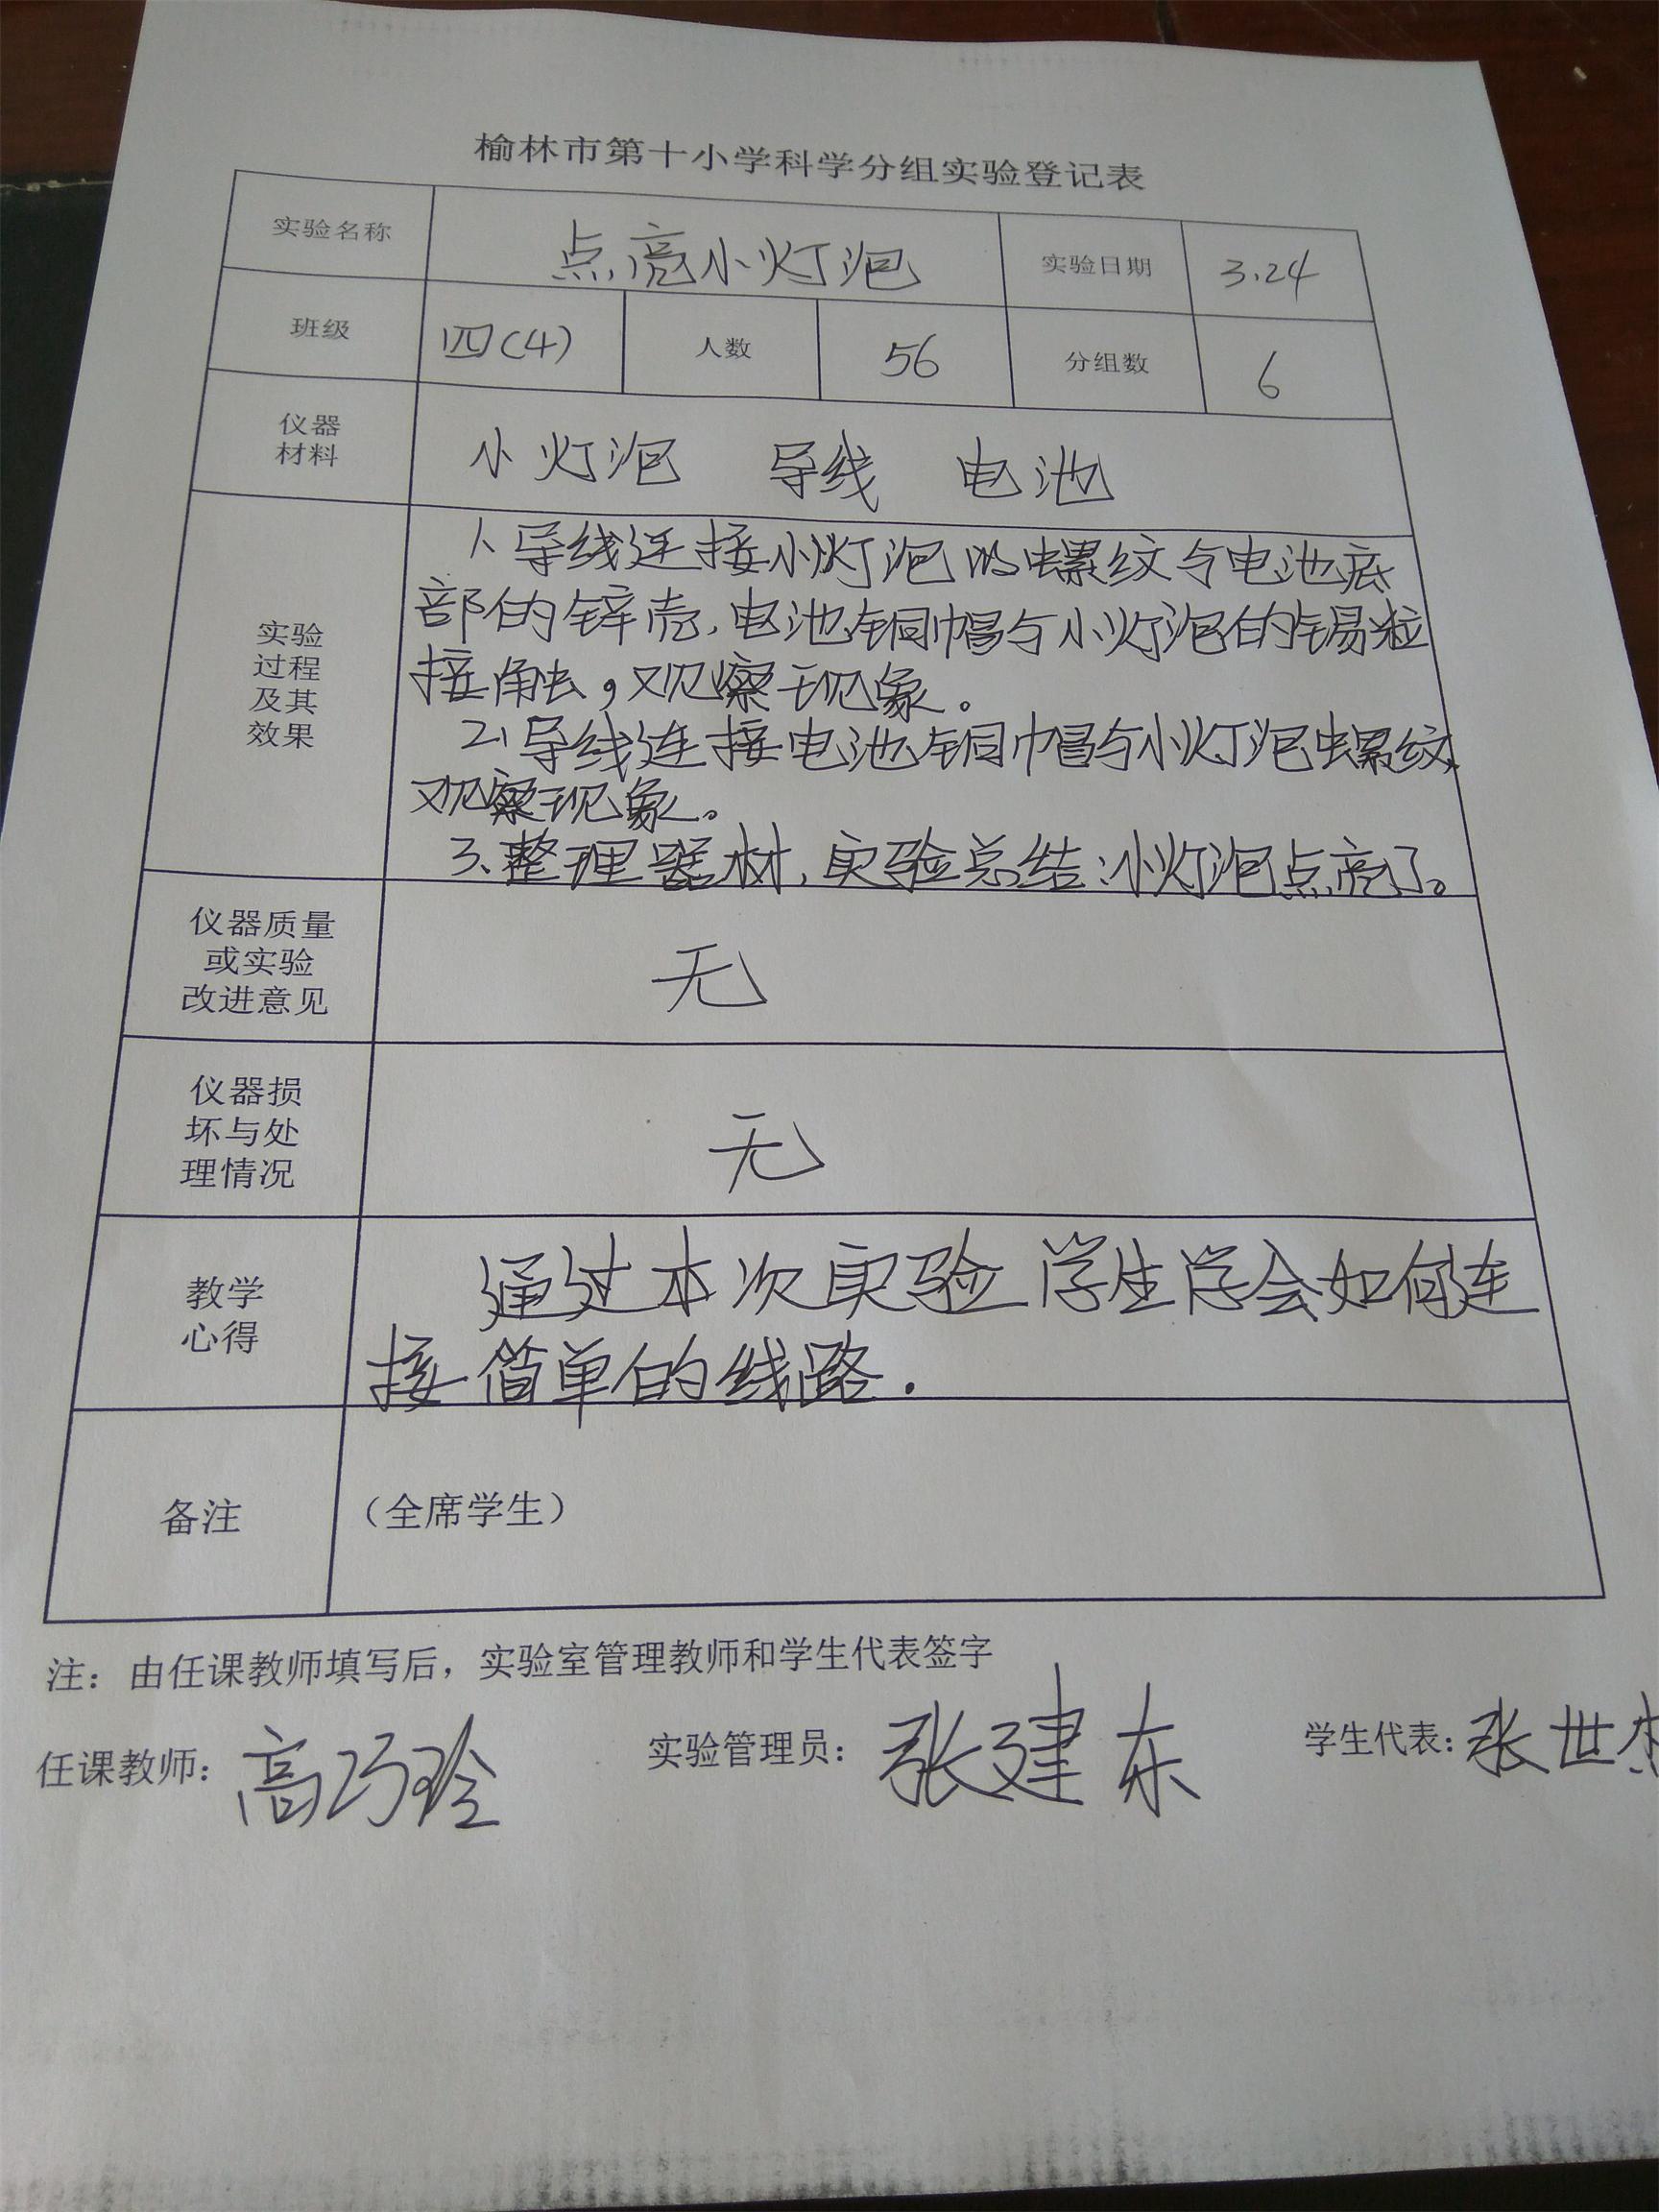 榆林市第十小学科学分组实验登记表
实验名称 点亮小灯泡 实验日期 3.24
班级 四(4) 人数 56 分组数 6
仪器
材料
小灯泡 导线 电池
实验
过程
及其
效果
1、导线连接小灯泡的螺纹与电池底
部的锌壳,电池铜帽与小灯泡的锡粒
接触,观察现象。
2、导线连接电池铜帽与小灯泡螺纹,
观察现象。
3、整理器材,实验总结:小灯泡点亮了。
仪器质量
或实验
改进意见
无
仪器损
坏与处
理情况
无
教学
心得
通过本次实验学生学会如何连
接简单的线路.
备注 (全席学生)
注:由任课教师填写后,实验室管理教师和学生代表签字
任课教师:高巧玲 实验管理员:张建东 学生代表:张世